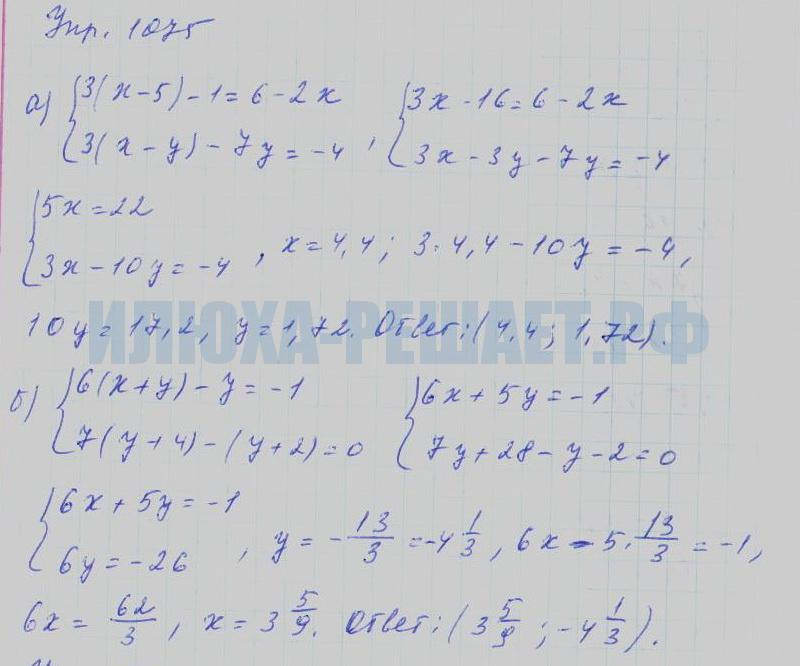 Упр. 1075
а) {3(x-5)-1=6-2x {3x-16=6-2x
3(x-y)-7y=-4 , 3x-3y-7y=-4
{5x=22
3x-10y=-4 , x=4,4; 3·4,4-10y=-4,
10y=17,2, y=1,72. Ответ: (4,4; 1,72).
ИЛЮХА-РЕШАЕТ.РФ
б) {6(x+y)-y=-1 {6x+5y=-1
7(y+4)-(y+2)=0 7y+28-y-2=0
{6x+5y=-1
6y=-26 , y=-13/3=-4 1/3, 6x-5·13/3=-1,
6x=62/3, x=3 5/9. Ответ: (3 5/9; -4 1/3).